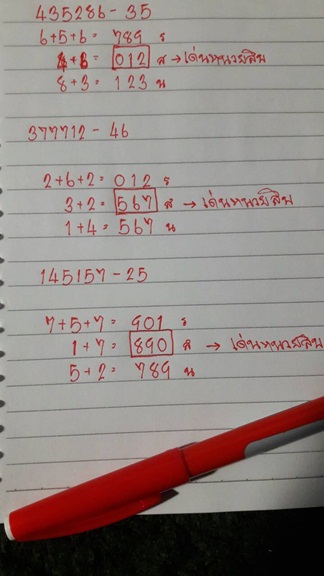 435286-35
6+5+6= 789 ร
4+6= 012 ส →เด่นหน่วยสิบ
8+3= 123 น
377712-46
2+6+2= 012 ร
3+2= 567 ส → เด่นหน่วยสิบ
1+4= 567 น
145157-25
7+5+7= 901 ร
1+7= 890 ส → เด่นหน่วยสิบ
5+2= 789 น